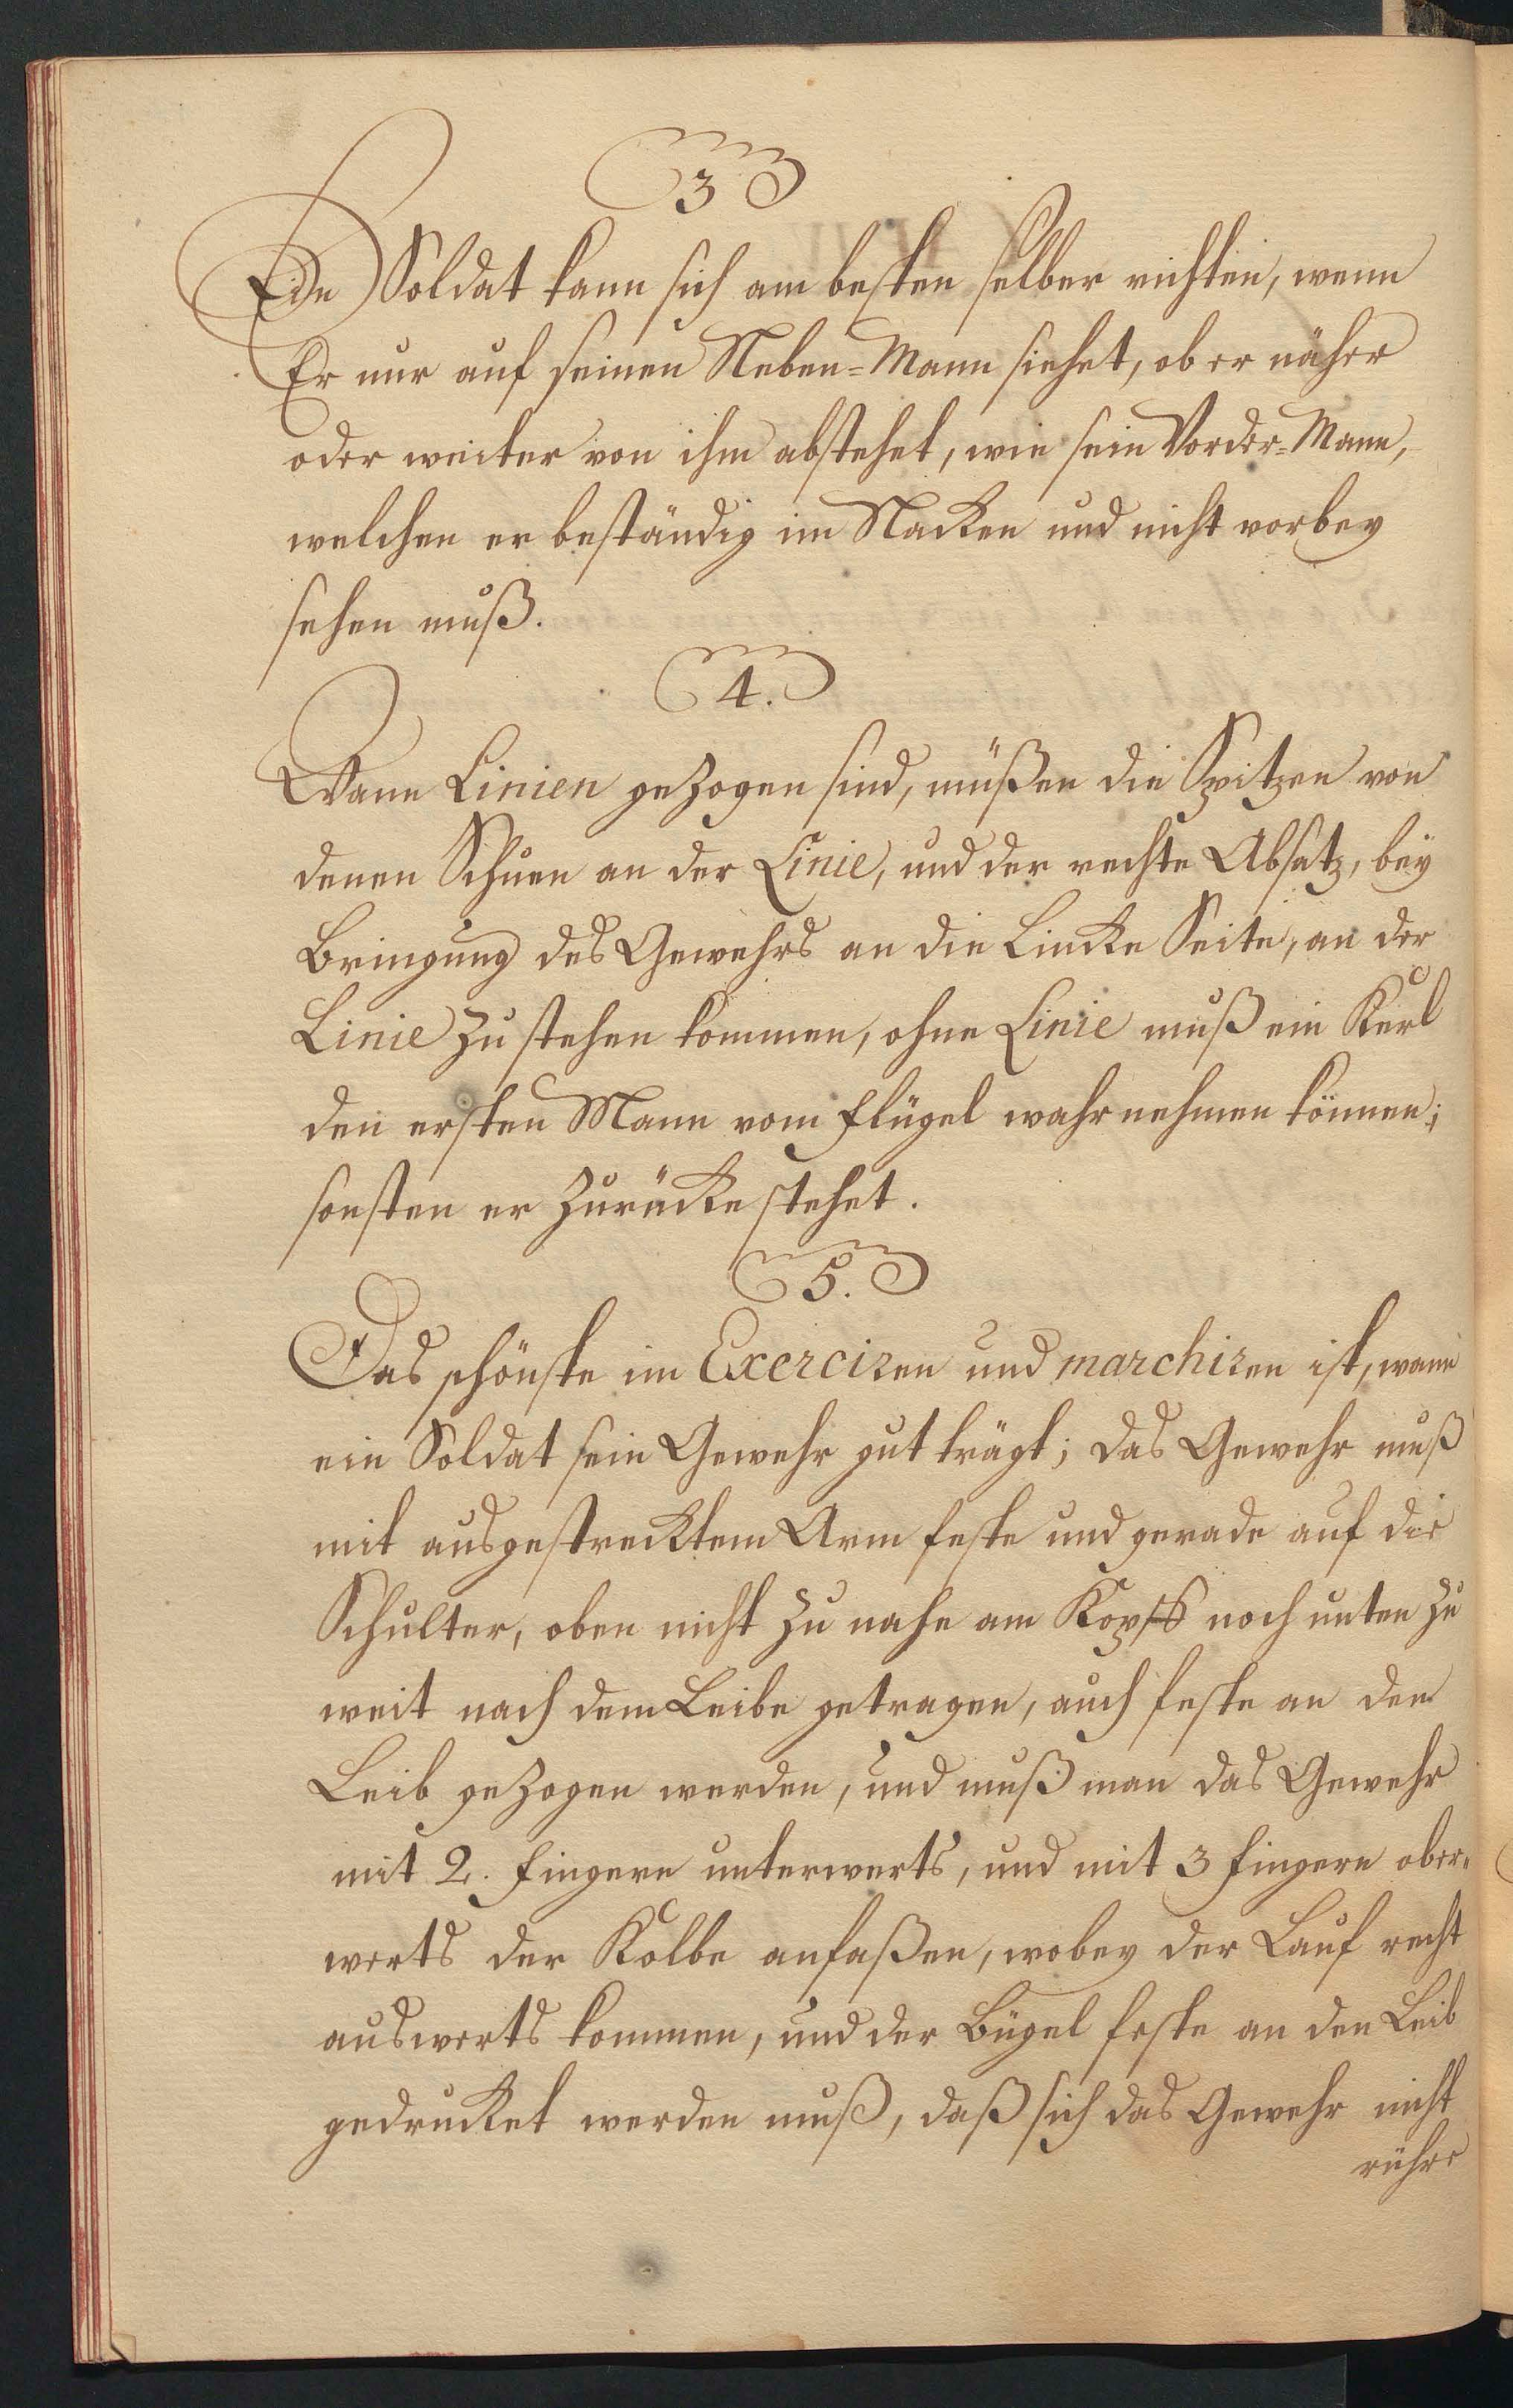 3
Ein Soldat kann sich am besten selber richten, wenn
Er nur auf seinen Neben=Mann siehet, ob er näher
oder weiter von ihm abstehet, wie sein Vorder=Mann,
welchen er beständig im Nacken und nicht vorbey
sehen muß.
4.
Wann Linien gezogen sind, müßen die Spitzen von
denen Schuen an der Linie, und der rechte Absatz, bey
Bringung des Gewehrs an die Lincke Seite, an der
Linie zu stehen kommen, ohne Linie muß ein Kerl
den ersten Mann vom Flügel wahr nehmen können;
sonsten er zurücke stehet.
5.
Das schönste im Exerciren und marchiren ist, wann
ein Soldat sein Gewehr gut trägt; das Gewehr muß
mit ausgestrecktem Arm feste und gerade auf die
Schulter, oben nicht zu nahe am Kopff noch unten zu
weit nach dem Leibe getragen, auch feste an den
Leib gezogen werden, und muß man das Gewehr
mit 2. Fingern unterwerts, und mit 3 Fingern ober=
werts der Kolbe anfaßen, wobey der Lauf recht
auswerts kommen, und der Bügel feste an den Leib
gedrucket werden muß, daß sich das Gewehr nicht
rühre